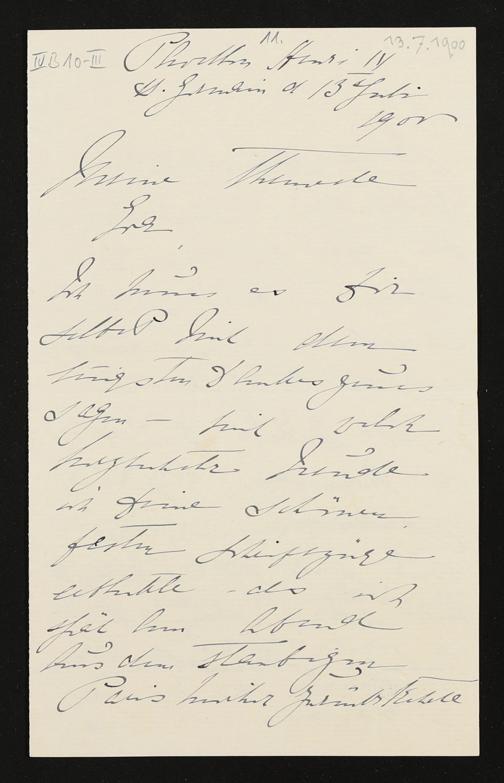 IV B 10-III
11.
13.7.1900
Pavillon Henri IV
St. Germain d 13t Juli
1900
Meine Theuerste
Eva,
Ich muss es Dir
selbst mit dem
innigsten Dankesgruss
sagen – mit welch
herzlichster Freude
ich Deine schönen
festen Schriftzüge
erblickte – als ich
spät am Abend
aus dem staubigen
Paris hierher zurückkehrte